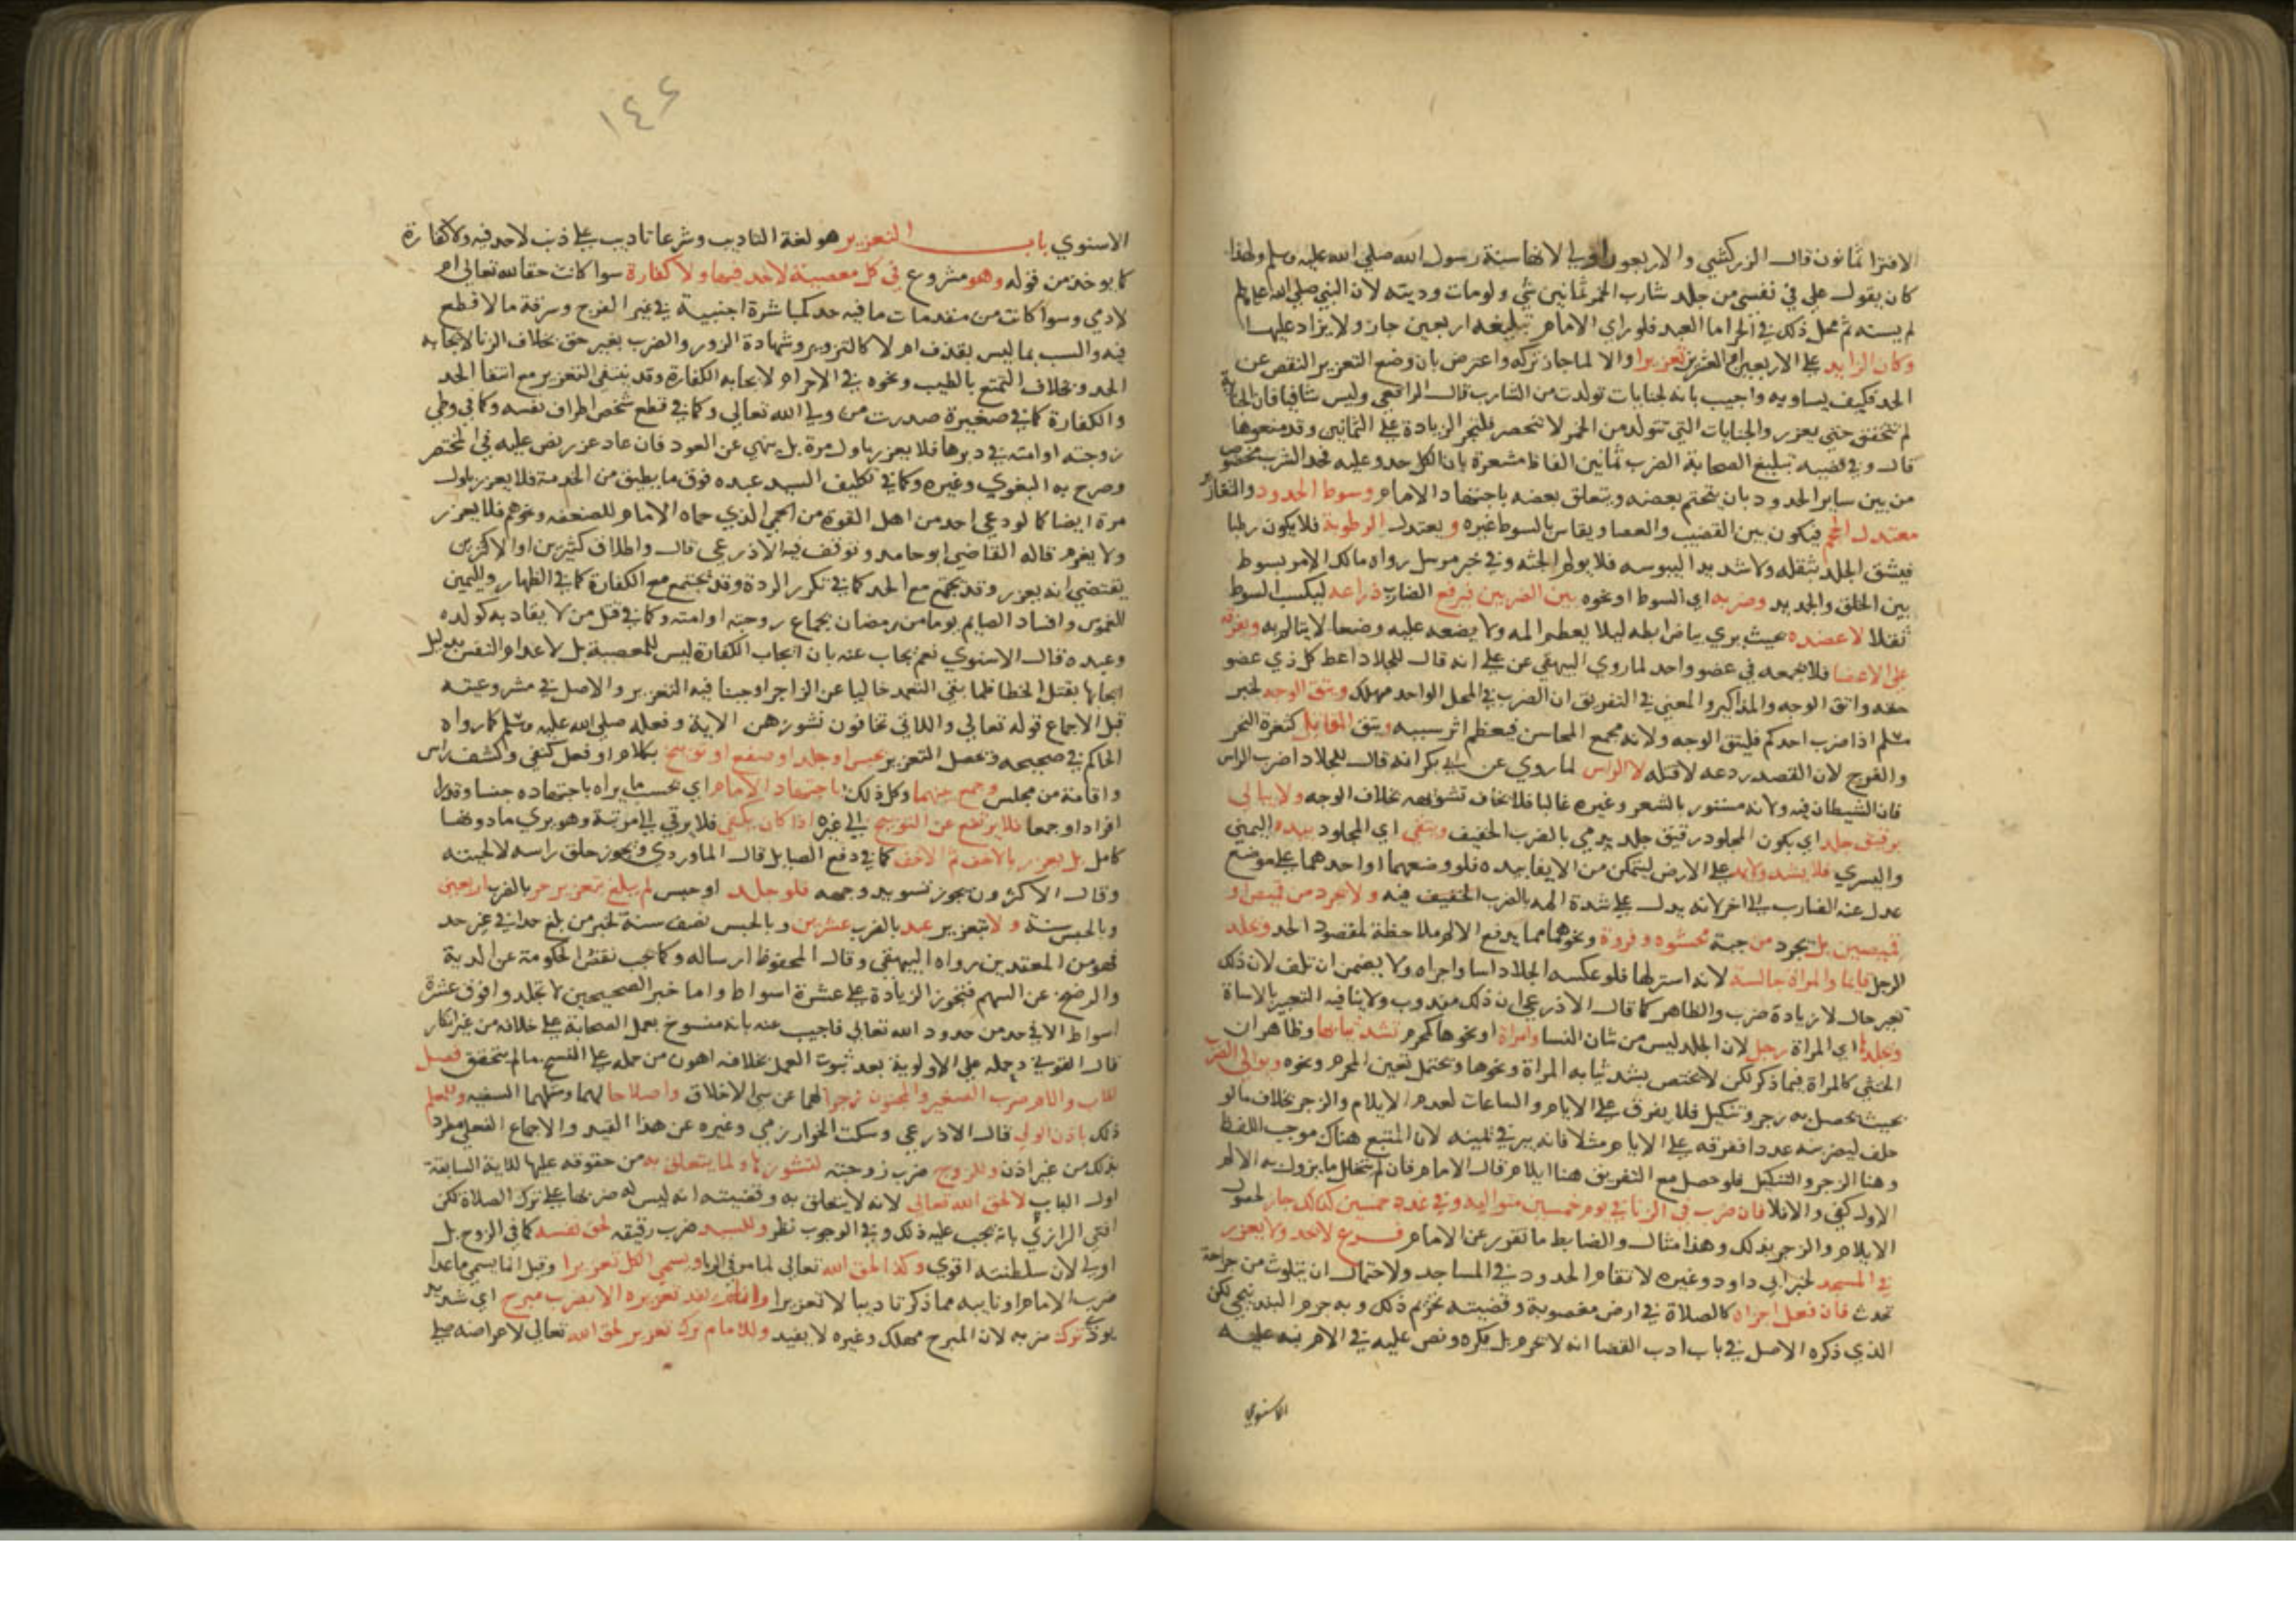 الافترا ثمانون قال الزركشي والاربعون اولى لانها سنة رسول الله صلى الله عليه وسلم ولهذا
كان يقول علي في نفسي من جلد شارب الخمر ثمانين شي ولو مات وديته لان النبي صلى الله عليه وسلم
لم يسنه ثم محل ذلك في الحر اما العبد فلو راي الامام تبليغه اربعين جاز ولا يزاد عليها
وكان الزايد على الاربعين او العشرين تعزيرا والا لما جاز تركه واعترض بان وضع التعزير النقص عن
الحد فكيف يساويه واجيب بانه لجنايات تولدت من الشارب قال الرافعي وليس شافيا فان الجناية
لم تتحقق حتي يعزر والجنايات التي تتولد من الخمر لا تنحصر فلتجز الزيادة على الثمانين وقد منعوها
قال وفي قصة تبليغ الصحابة الضرب ثمانين الفاظ مشعرة بان الكل حد وعليه فحد الشرب مخصوص
من بين ساير الحدود بان يتحتم بعضه ويتعلق بعضه باجتهاد الامام وسوط الحدود والتعازير
معتدل الحجم فيكون بين القضيب والعصا ويقاس بالسوط غيره ويعتدل الرطوبة فلا يكون رطبا
فيشق الجلد بثقله ولا شديد اليبوسه فلا يولم لخفته وفي خبر مرسل رواه مالك الامر بسوط
بين الخلق والجديد وضربه اي السوط او نحوه بين الضربين فيرفع الضارب ذراعه ليكسب السوط
ثقلا لا عضده بحيث يري بياض ابطه ليلا يعظم المه ولا يضعه عليه وضعا لا يتالم به ويفرقه
على الاعضا فلا يجمعه في عضو واحد لما روي البيهقي عن علي انه قال للجلاد اعط كل ذي عضو
حقه واتق الوجه والمذاكير والمعني في التفريق ان الضرب في المحل الواحد مهلك ويتق الوجه لخبر
مسلم اذا ضرب احدكم فليتق الوجه ولانه مجمع المحاسن فيعظم اثر سببه ويتق المقاتل كثغرة النحر
والفرج لان القصد ردعه لا قتله لا الراس لما روي عن ابي بكر انه قال للجلاد اضرب الراس
فان الشيطان فيه ولانه مستور بالشعر وغيره غالبا فلا يخاف تشويهه بخلاف الوجه ولا يبالي
برقيق جلد اي بكون المجلود رقيق جلد يدمي بالضرب الخفيف ويتقي اي المجلود بيده اليمني
واليسري فلا يشد ولا يمد على الارض ليتمكن من الايقا بيده فلو وضعهما او احدهما على موضع
عدل عنه الضارب الى اخر لانه يدل على شدة المه بالضرب الخفيف فيه ولا يجرد من قميص او
قميصين بل يجرد من جبة محشوه وفروة ونحوهما مما يدفع الالم ملاحظة لمقصود الحد ويجلد
الرجل قايما والمراة جالسة لانه استر لها فلو عكسه الجلاد اسا واجزاه ولا يضمن ان تلف لان ذلك
تغير حال لا زيادة ضرب والظاهر كما قال الاذرعي ان ذلك مندوب ولا ينافيه التعبير بالاساة
ويجلدها اي المراة رجل لان الجلد ليس من شان النسا وامراة او نحوها كمحرم تشد ثيابها وظاهر ان
الخنثي كالمراة فيما ذكر لكن لا يختص بشد ثيابه المراة ونحوها ويحتمل تعين المحرم ونحوه ويوالي الضرب
بحيث يحصل به زجر وتنكيل فلا يفرق على الايام والساعات لعدم الايلام والزجر بخلاف ما لو
حلف ليضربنه عددا ففرقه على الايام مثلا فانه يبر في يمينه لان المتبع هناك موجب اللفظ
وهنا الزجر والتنكيل فلو حصل مع التفريق هنا ايلام قال الامام فان لم يتخلل ما يزول به الالم
الاول كفي والا فلا فان ضرب في الزنا في يوم خمسين متواليه وفي غده خمسين كذلك جاز لحصول
الايلام والزجر بذلك وهذا مثال والضابط ما تقرر عن الامام فرع لا يحد ولا يعزر
في المسجد لخبر ابي داود وغيره لا تقام الحدود في المساجد ولاحتمال ان يتلوث من جراحة
تحدث فان فعل اجزاه كالصلاة في ارض مغصوبة وقضيته تحريم ذلك وبه جزم البندنيجي لكن
الذي ذكره الاصل في باب ادب القضا انه لا يحرم بل يكره ونص عليه في الام نبه عليه
الاسنوي
١٤٦
الاسنوي باب التعزير هو لغة التاديب وشرعا تاديب على ذنب لا حد فيه ولا كفارة
كما يوخذ من قوله وهو مشروع في كل معصية لا حد فيها ولا كفارة سوا كانت حقا لله تعالى ام
لادمي وسوا كانت من مقدمات ما فيه حد كمباشرة اجنبية في غير الفرج وسرقة ما لا قطع
فيه والسب بما ليس بقذف ام لا كالتزوير وشهادة الزور والضرب بغير حق بخلاف الزنا لايجابه
الحد وبخلاف التمتع بالطيب ونحوه في الاحرام لايجابه الكفارة وقد ينتفي التعزير مع انتفا الحد
والكفارة كما في صغيرة صدرت من ولي الله تعالى وكما في قطع شخص اطراف نفسه وكما في وطي
زوجته او امته في دبرها فلا يعزر باول مرة بل ينهي عن العود فان عاد عزر نص عليه في المختصر
وصرح به البغوي وغيره وكما في تكليف السيد عبده فوق ما يطيق من الخدمة فلا يعزر باول
مرة ايضا كما لو دعي احد من اهل القوة من الحمي الذي حماه الامام للضعفه ونحوهم فلا يعزر
ولا يغرم قاله القاضي ابو حامد وتوقف فيه الاذرعي قال واطلاق كثيرين او الاكثرين
يقتضي انه يعزر وقد يجتمع مع الحد كما في تكرر الردة وقد يجتمع مع الكفارة كما في الظهار واليمين
الغموس وافساد الصايم يوما من رمضان بجماع زوجته او امته وكما في قتل من لا يقاد به كولده
وعبده قال الاسنوي نعم يجاب عنه بان ايجاب الكفارة ليس للمعصية بل لاعدام النفس بدليل
ايجابها بقتل الخطا فلما بقي التعمد خاليا عن الزاجر اوجبنا فيه التعزير والاصل في مشروعيته
قبل الاجماع قوله تعالى واللاتي تخافون نشوزهن الاية وفعله صلى الله عليه وسلم كما رواه
الحاكم في صحيحه ويحصل التعزير بحبس او جلد او صفع او توبيخ بكلام او فعل كنفي وكشف راس
واقامة من مجلس وجمع بينهما وكل ذلك باجتهاد الامام اي بحسب ما يراه باجتهاده جنسا وقدرا
افرادا وجمعا فلا يرتفع عن التوبيخ الى غيره اذا كان يكفي فلا يرقي الى مرتبة وهو يري ما دونها
كامل بل يعزر بالاخف ثم الاخف كما في دفع الصايل قال الماوردي ويجوز حلق راسه لا لحيته
وقال الاكثرون يجوز تسويد وجهه فلو جلد او حبس لم يبلغ بتعزير حر بالضرب اربعين
وبالحبس سنة ولا بتعزير عبد بالضرب عشرين وبالحبس نصف سنة لخبر من بلغ حدا في غير حد
فهو من المعتدين رواه البيهقي وقال المحفوظ ارساله وكما يجب نقص الحكومة عن الدية
والرضخ عن السهم فتجوز الزيادة على عشرة اسواط واما خبر الصحيحين لا يجلد فوق عشرة
اسواط الا في حد من حدود الله تعالى فاجيب عنه بانه منسوخ بعمل الصحابة على خلافه من غير انكار
قال القونوي وحمله على الاولوية بعد ثبوت العمل بخلافه اهون من حمله على النسخ ما لم يتحقق فصل
للاب والام ضرب الصغير والمجنون زجرا لهما عن سي الاخلاق واصلاحا لهما ومثلهما السفيه وللمعلم
ذلك باذن الولي قال الاذرعي وسكت الخوارزمي وغيره عن هذا القيد والاجماع الفعلي مطرد
بذلك من غير اذن وللزوج ضرب زوجته لنشوزها ولما يتعلق به من حقوقه عليها للاية السابقة
اول الباب لا لحق الله تعالى لانه لا يتعلق به وقضيته انه ليس له ضربها على ترك الصلاة لكن
افتي الرازي بانه يجب عليه ذلك وفي الوجوب نظر وللسيد ضرب رقيقه لحق نفسه كما في الزوج بل
اولى لان سلطنته اقوي وكذا لحق الله تعالى لما مر في الزنا ويسمي الكل تعزيرا وقيل انما يسمي ما عدا
ضرب الامام او نايبه مما ذكر تاديبا لا تعزيرا وان لم يفد تعزيره الا بضرب مبرح اي شديد
يوذي ترك ضربه لان المبرح مهلك وغيره لا يفيد وللامام ترك تعزير لحق الله تعالى لاعراضه صلى